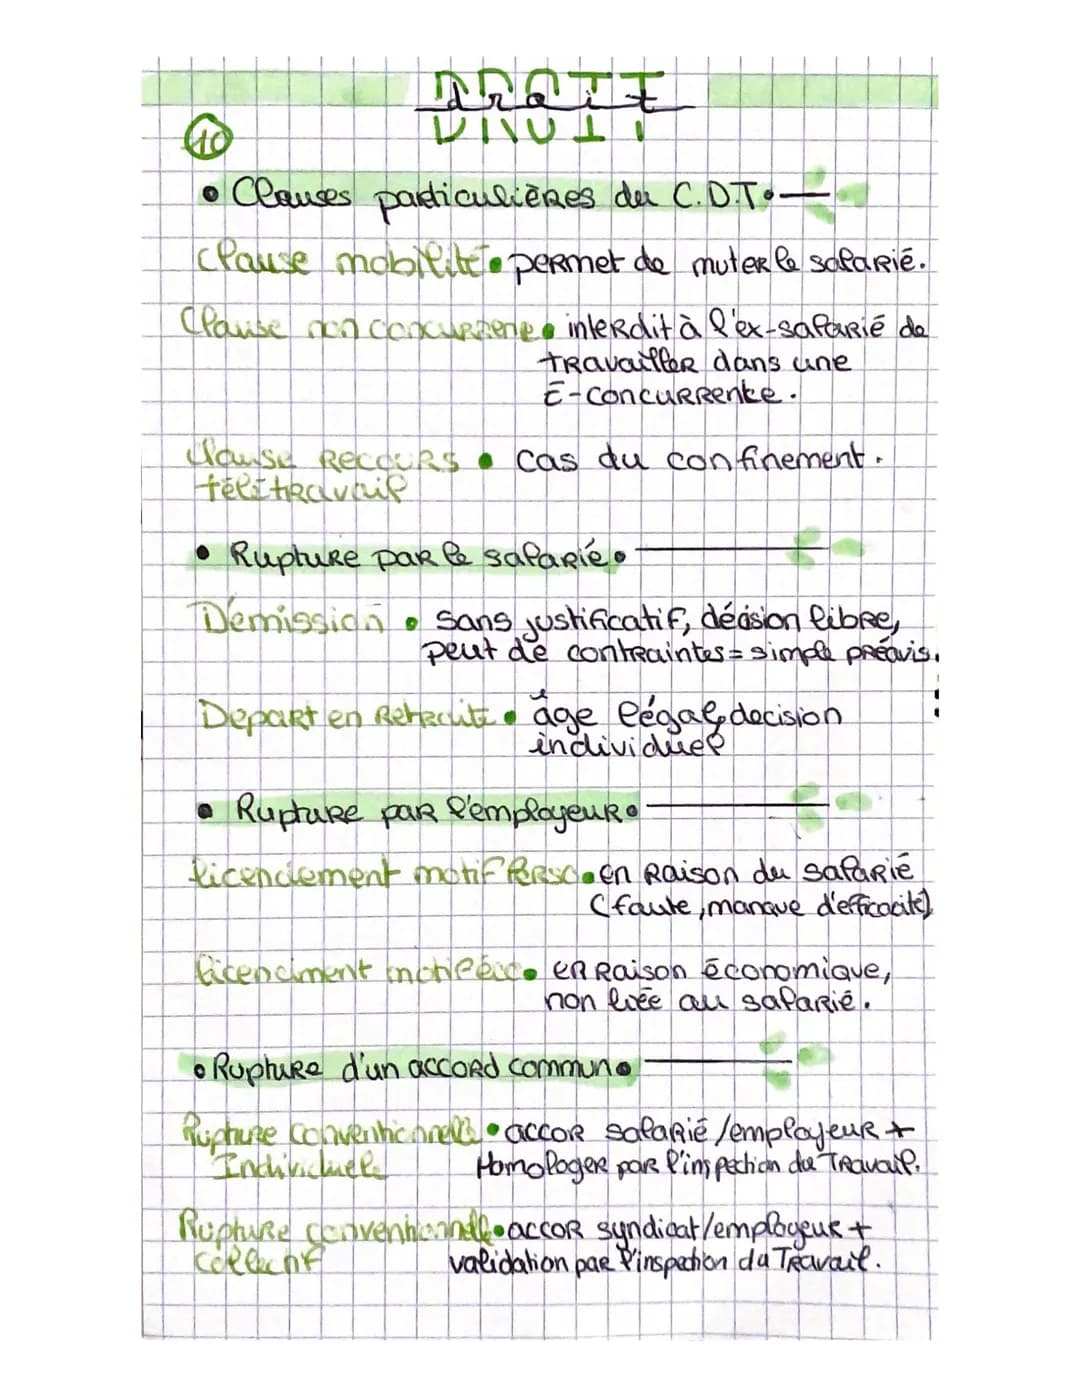 DROIT
droit
10
• Clauses particulières du C.D.T •
Clause mobilité • permet de muter le salarié.
Clause non concurrene • interdit à l'ex-salarié de
travailler dans une
E-concurrente.
Clause Recours • cas du confinement.
télétravail
• Rupture par le salarié •
Démission • sans justificatif, décision libre,
peut de contraintes = simple préavis.
Depart en Retraite • âge légal, decision
individuel
• Rupture par l'employeur •
licenciement motif Perso • en Raison du salarié
(faute, manque d'efficacité)
licenciment motif éco • en Raison économique,
non liée au salarié.
• Rupture d'un accord commun •
Rupture Conventionnelle • accor salarié/employeur +
Individuele Homologer par l'inspection du Travail.
Rupture conventionnelle • accor syndicat/employeur +
collectif validation par l'inspection du Travail.